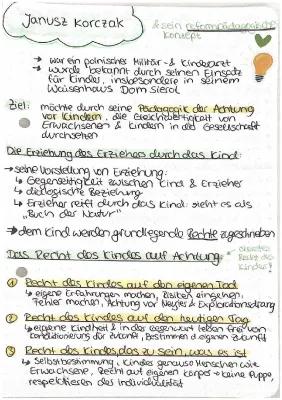 Janusz Korczak
& sein reformpädagogisches
Konzept
→ war ein polnischer Militär- & Kinderarzt
→ wurde bekannt durch seinen Einsatz
für Kinder, insbesondere in seinem
Waisenhaus Dom Sierot
Ziel: möchte durch seine Pädagogik der Achtung
vor Kindern, die Gleichwertigkeit von
Erwachsenen & Kindern in der Gesellschaft
durchsetzen
Die Erziehung des Erziehers durch das Kind:
→ seine Vorstellung von Erziehung:
↳ Gegenseitigkeit zwischen Kind & Erzieher
↳ dialogische Beziehung
↳ Erzieher reift durch das Kind: sieht es als
„Buch der Natur"
→ dem Kind werden grundlegende Rechte zugeschrieben
Das Recht des Kindes auf Achtung
oberstes
Recht des
Kindes!
1 Recht des Kindes auf den eigenen Tod
↳ eigene Erfahrungen machen, Risiken eingehen,
Fehler machen, Achtung vor Neugier & Explorationsdrang
2 Recht des Kindes auf den heutigen Tag
↳ eigene Kindheit & in der Gegenwart leben frei von
Konditionierung für Zukunft, Bestimmen d. eigenen Zukunft
3 Recht des Kindes, das zu sein, was es ist
↳ Selbstbestimmung, Kinder genauso Menschen wie
Erwachsene, Recht auf eigenen Körper → keine Puppe,
respektieren der Individualität